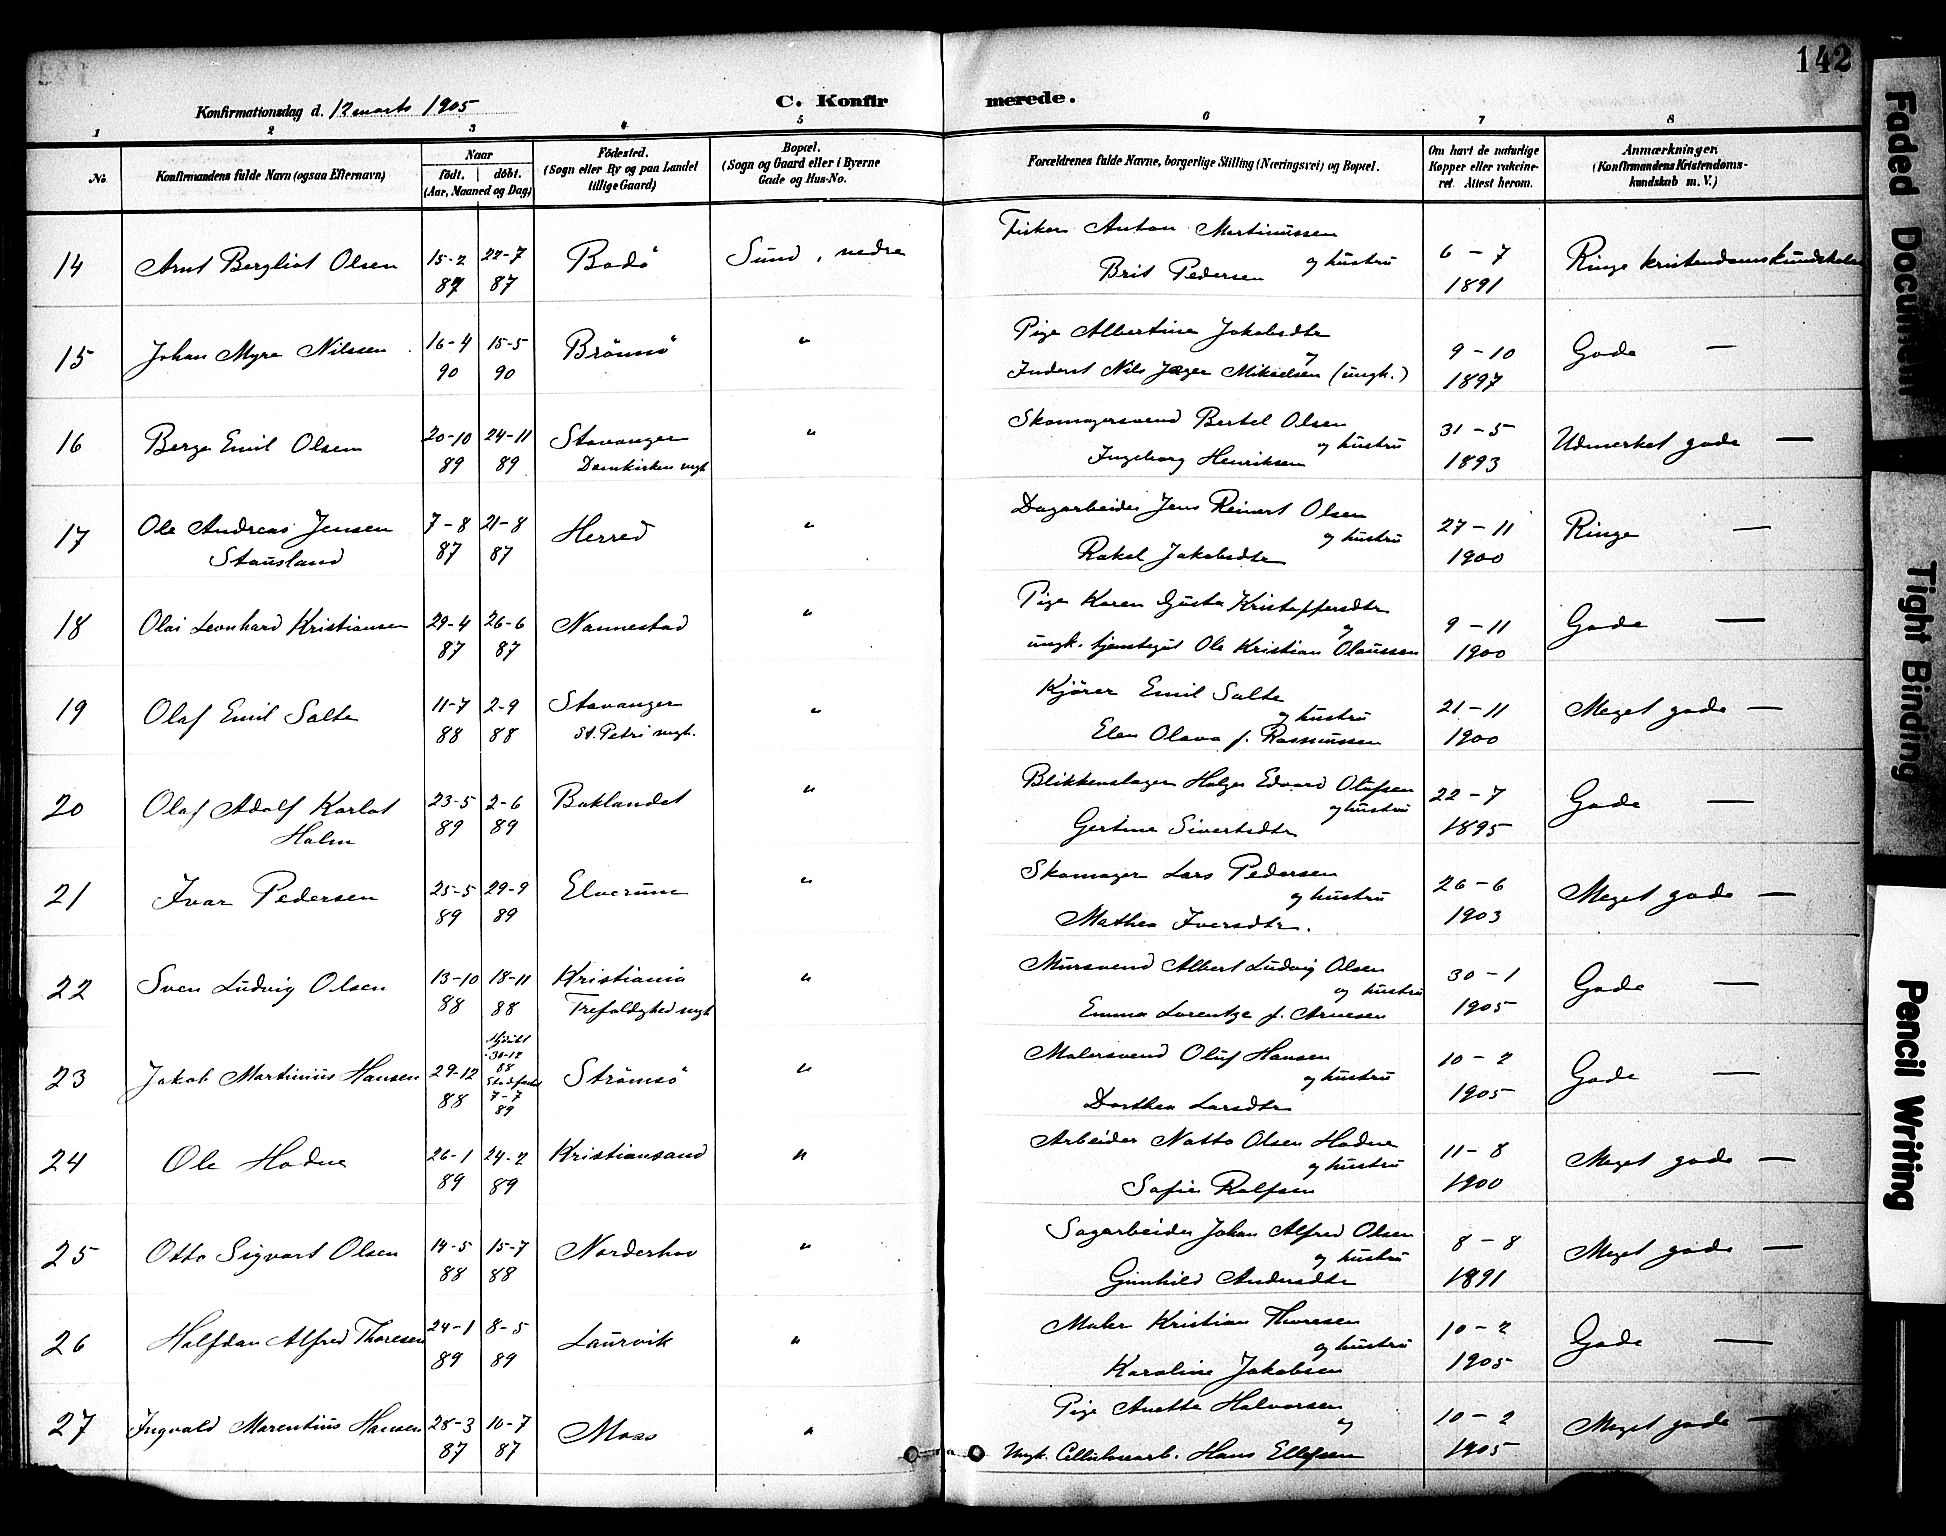 142
Konfirmationsdag d. 12 marts 1905
C. Konfirmerede.
1 2 3 4 5 6 7 8
No.
Konfirmandens fulde Navn (ogsaa Efternavn)
Naar
født. døbt.
(Aar, Maaned og Dag)
Fødested.
(Sogn eller By og paa Landet
tillige Gaard)
Bopæl.
(Sogn og Gaard eller i Byerne
Gade og Hus-No.
Forældrenes fulde Navne, borgerlige Stilling (Næringsvei) og Bopæl.
Om havt de naturlige
Kopper eller vakcine-
ret. Attest herom.
Anmærkninger.
(Konfirmandens Kristendoms-
kundskab m. V.)
14 Arnt Bergliot Olsen 15-2 87 22-7 87 Bodö Sund, nedre
Fisker Anton Martinussen
og hustru
Brit Pedersen
6-7 1891 Ringe kristendomskundskab
15 Johan Myre Nilssen 16-4 90 15-5 90 Brönnö "
Pige Albertine Jakobsdtr
og
Inderst Nils Jæger Mikaelsen (ungk.)
9-10 1897 Gode —
16 Berge Emil Olsen 20-10 89 24-11 89 Stavanger
Domkirken mgh "
Skomagersvend Bertel Olsen
og hustru
Ingeborg Henriksen
31-5 1893 Udmerket gode —
17 Ole Andreas Jensen
Stausland 7-8 87 21-8 87 Herred "
Dagarbeider Jens Reinert Olsen
og hustru
Rakel Jakobsdtr
27-11 1900 Ringe —
18 Olai Leonhard Kristiansen 29-4 87 26-6 87 Nannestad "
Pige Karen Gusta Kristoffersdtr
og
ungk. tjenstegut Ole Kristian Olaussen
9-11 1900 Gode —
19 Olaf Emil Salte 11-7 88 2-9 88 Stavanger
St. Petri mgh. "
Kjörer Emil Salte
og hustru
Elen Olava f. Rasmussen
21-11 1900 Meget gode —
20 Olaf Adolf Karlot
Holm 23-5 89 2-6 89 Baklandet "
Blikkenslager Holger Edvard Olufsen
og hustru
Gertine Sivertsdtr
22-7 1895 Gode —
21 Ivar Pedersen 25-5 89 29-9 89 Elverum "
Skomager Lars Pedersen
og hustru
Mathea Iversdtr.
26-6 1903 Meget gode —
22 Sven Ludvig Olsen 13-10 88 18-11 88 Kristiania
Trefoldighed mgh "
Mursvend Albert Ludvig Olsen
og hustru
Emma Lorentze f. Arnesen
30-1 1905 Gode —
23 Jakob Martinius Hansen 29-12 88 Hjdöbt
30-12
88
Stadfæstet
7-7
89 Strömsö "
Malersvend Oluf Hansen
og hustru
Dorthea Larsdtr
10-2 1905 Gode —
24 Ole Hodne 26-1 89 24-2 89 Kristiansand "
Arbeider Natto Olsen Hodne
og hustru
Sofie Rolfsen
11-8 1900 Meget gode —
25 Otto Sigvart Olsen 14-5 88 15-7 88 Norderhov "
Sagarbeider Johan Alfred Olsen
og hustru
Gunhild Andersdtr
8-8 1891 Meget gode —
26 Halfdan Alfred Thoresen 24-1 89 8-5 89 Laurvik "
Maler Kristian Thoresen
og hustru
Karoline Jakobsen
10-2 1905 Gode —
27 Ingvald Marentius Hansen 28-3 87 10-7 87 Moss "
Pige Anette Halvorsen
og
Ungk. Cellulosearb. Hans Ellefsen
10-2 1905 Meget gode —
Faded Document
Tight Binding
Pencil Writing